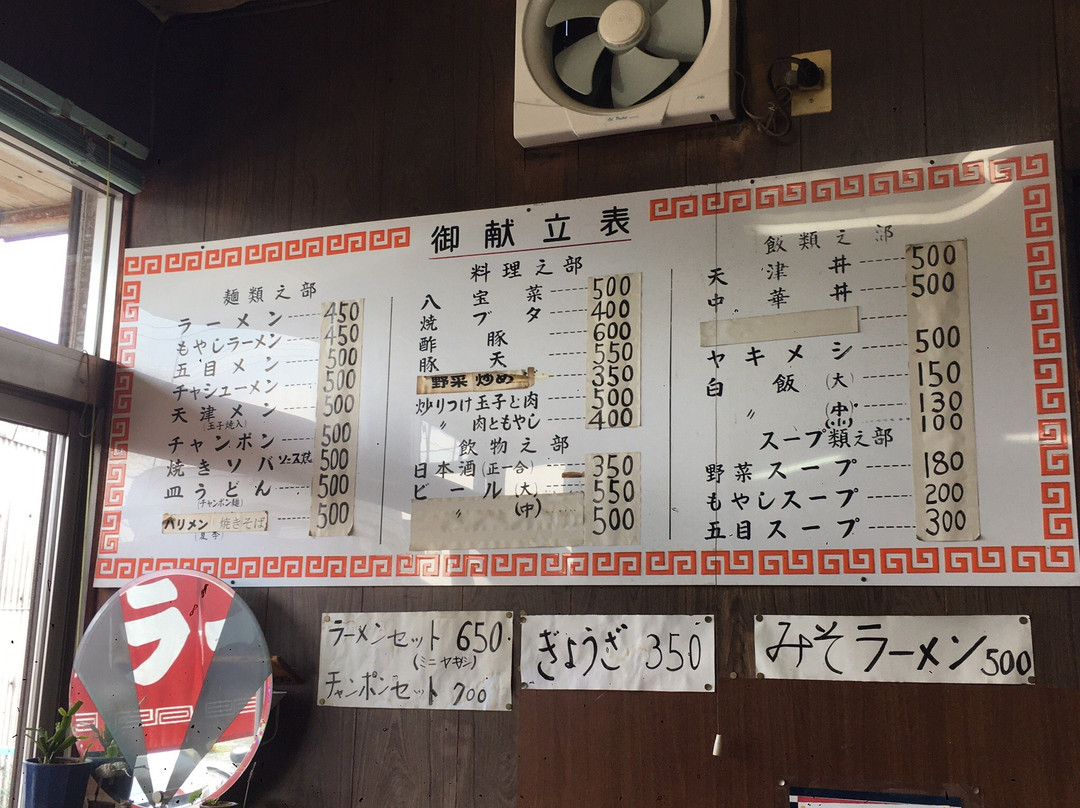 御献立表
麺類之部
ラーメン 450
もやしラーメン 450
五目メン 500
チャシューメン 500
天津メン 500
(玉子焼入)
チャンポン 500
焼きソバ ソース焼 500
皿うどん 500
(チャンポン麺)
バリメン 焼きそば 500
料理之部
八宝菜 500
焼ブタ 400
酢豚 600
豚天 550
野菜炒め 350
炒りつけ玉子と肉 500
〃 肉ともやし 400
飲物之部
日本酒(正一合) 350
ビール(大) 550
〃 (中) 500
飯類之部
天津丼 500
中華丼 500
ヤキメシ 500
白飯(大) 150
〃 (中) 130
(小) 100
スープ類之部
野菜スープ 180
もやしスープ 200
五目スープ 300
ラーメンセット 650
(ミニヤキメシ)
チャンポンセット 700
ぎょうざ 350
みそラーメン 500
ラー